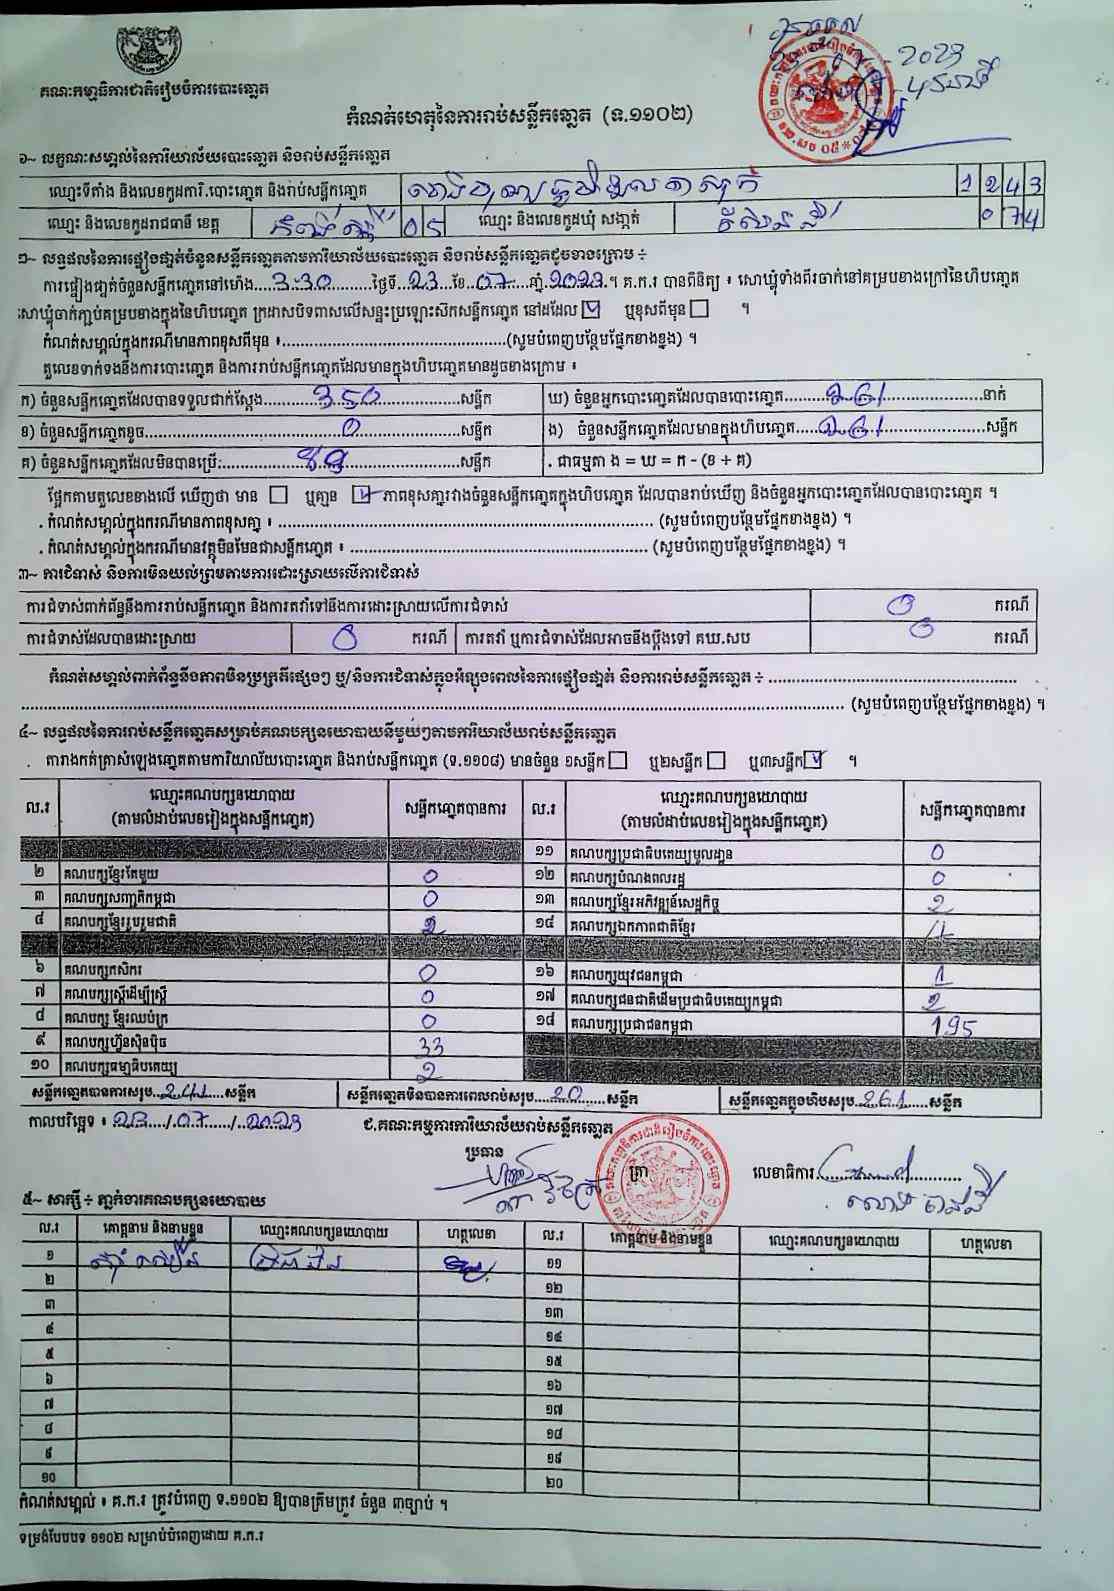 គណៈកម្មាធិការជាតិរៀបចំការបោះឆ្នោត
2023
កំណត់ហេតុនៃការរាប់សន្លឹកឆ្នោត (ទ.១១០២)
១~ លក្ខណៈសម្គាល់នៃការិយាល័យបោះឆ្នោត និងរាប់សន្លឹកឆ្នោត
ឈ្មោះទីតាំង និងលេខកូដការិ.បោះឆ្នោត និងរាប់សន្លឹកឆ្នោត 1243
ឈ្មោះ និងលេខកូដរាជធានី ខេត្ត កំពង់ស្ពឺ 05 ឈ្មោះ និងលេខកូដឃុំ សង្កាត់ 074
២~ លទ្ធផលនៃការផ្ទៀងផ្ទាត់ចំនួនសន្លឹកឆ្នោតតាមការិយាល័យបោះឆ្នោត និងរាប់សន្លឹកឆ្នោតដូចខាងក្រោម ÷
ការផ្ទៀងផ្ទាត់ចំនួនសន្លឹកឆ្នោតនៅម៉ោង....3:30....ថ្ងៃទី..23..ខែ..07..ឆ្នាំ.2023.។ គ.ក.រ បានពិនិត្យ ៖ សោឃ្លុំទាំងពីរចាក់នៅគម្របខាងក្រៅនៃហិបឆ្នោត
សោឃ្លុំចាក់ភ្ជាប់គម្របខាងក្នុងនៃហិបឆ្នោត ក្រដាសបិទពាសលើសន្ទះប្រឡោះស៊កសន្លឹកឆ្នោត នៅដដែល ☑ ឬខុសពីមុន ☐ ។
កំណត់សម្គាល់ក្នុងករណីមានភាពខុសពីមុន ៖........(សូមបំពេញបន្ថែមផ្នែកខាងខ្នង) ។
តួលេខទាក់ទងនឹងការបោះឆ្នោត និងការរាប់សន្លឹកឆ្នោតដែលមានក្នុងហិបឆ្នោតមានដូចខាងក្រោម ៖
ក) ចំនួនសន្លឹកឆ្នោតដែលបានទទួលជាក់ស្តែង........350........សន្លឹក ឃ) ចំនួនអ្នកបោះឆ្នោតដែលបានបោះឆ្នោត........261........នាក់
ខ) ចំនួនសន្លឹកឆ្នោតខូច........0........សន្លឹក ង) ចំនួនសន្លឹកឆ្នោតដែលមានក្នុងហិបឆ្នោត........261........សន្លឹក
គ) ចំនួនសន្លឹកឆ្នោតដែលមិនបានប្រើ:........89........សន្លឹក . ជាធម្មតា ង = ឃ = ក - (ខ + គ)
ផ្អែកតាមតួលេខខាងលើ ឃើញថា មាន ☐ ឬគ្មាន ☑ ភាពខុសគ្នារវាងចំនួនសន្លឹកឆ្នោតក្នុងហិបឆ្នោត ដែលបានរាប់ឃើញ និងចំនួនអ្នកបោះឆ្នោតដែលបានបោះឆ្នោត ។
. កំណត់សម្គាល់ក្នុងករណីមានភាពខុសគ្នា ៖ ........ (សូមបំពេញបន្ថែមផ្នែកខាងខ្នង) ។
. កំណត់សម្គាល់ក្នុងករណីមានវត្ថុមិនមែនជាសន្លឹកឆ្នោត ៖ ........ (សូមបំពេញបន្ថែមផ្នែកខាងខ្នង) ។
៣~ ការជំទាស់ និងការមិនយល់ព្រមតាមការដោះស្រាយលើការជំទាស់
ការជំទាស់ពាក់ព័ន្ធនឹងការរាប់សន្លឹកឆ្នោត និងការតវ៉ាទៅនឹងការដោះស្រាយលើការជំទាស់ 0 ករណី
ការជំទាស់ដែលបានដោះស្រាយ 0 ករណី ការតវ៉ា ឬការជំទាស់ដែលអាចនឹងប្តឹងទៅ គឃ.សប 0 ករណី
កំណត់សម្គាល់ពាក់ព័ន្ធនឹងភាពមិនប្រក្រតីផ្សេងៗ ឬ/និងការជំទាស់ក្នុងអំឡុងពេលនៃការផ្ទៀងផ្ទាត់ និងការរាប់សន្លឹកឆ្នោត ÷ ........
........ (សូមបំពេញបន្ថែមផ្នែកខាងខ្នង) ។
៤~ លទ្ធផលនៃការរាប់សន្លឹកឆ្នោតសម្រាប់គណបក្សនយោបាយនីមួយៗតាមការិយាល័យរាប់សន្លឹកឆ្នោត
. តារាងកត់ត្រាសំឡេងឆ្នោតតាមការិយាល័យបោះឆ្នោត និងរាប់សន្លឹកឆ្នោត (ទ.១១០៨) មានចំនួន ១សន្លឹក ☐ ឬ២សន្លឹក ☐ ឬ៣សន្លឹក ☑ ។
ល.រ ឈ្មោះគណបក្សនយោបាយ (តាមលំដាប់លេខរៀងក្នុងសន្លឹកឆ្នោត) សន្លឹកឆ្នោតបានការ ល.រ ឈ្មោះគណបក្សនយោបាយ (តាមលំដាប់លេខរៀងក្នុងសន្លឹកឆ្នោត) សន្លឹកឆ្នោតបានការ
១១ គណបក្សប្រជាធិបតេយ្យមូលដ្ឋាន 0
២ គណបក្សខ្មែរតែមួយ 0 ១២ គណបក្សបំណងពលរដ្ឋ 0
៣ គណបក្សសញ្ជាតិកម្ពុជា 0 ១៣ គណបក្សខ្មែរអភិវឌ្ឍន៍សេដ្ឋកិច្ច 2
៤ គណបក្សខ្មែររួបរួមជាតិ 2 ១៤ គណបក្សឯកភាពជាតិខ្មែរ 4
៦ គណបក្សកសិករ 0 ១៦ គណបក្សយុវជនកម្ពុជា 1
៧ គណបក្សស្ត្រីដើម្បីស្ត្រី 0 ១៧ គណបក្សជនជាតិដើមប្រជាធិបតេយ្យកម្ពុជា 2
៨ គណបក្ស ខ្មែរឈប់ក្រ 0 ១៨ គណបក្សប្រជាជនកម្ពុជា 195
៩ គណបក្សហ៊្វុនស៊ិនប៉ិច 33
១០ គណបក្សធម្មាធិបតេយ្យ 2
សន្លឹកឆ្នោតបានការសរុប..241....សន្លឹក សន្លឹកឆ្នោតមិនបានការពេលរាប់សរុប....20....សន្លឹក សន្លឹកឆ្នោតក្នុងហិបសរុប..261....សន្លឹក
កាលបរិច្ឆេទ ៖ 23/07/2023 ជ.គណៈកម្មការការិយាល័យរាប់សន្លឹកឆ្នោត
ប្រធាន ត្រា លេខាធិការ
៥~ សាក្សី ÷ ភ្នាក់ងារគណបក្សនយោបាយ
ល.រ គោត្តនាម និងនាមខ្លួន ឈ្មោះគណបក្សនយោបាយ ហត្ថលេខា ល.រ គោត្តនាម និងនាមខ្លួន ឈ្មោះគណបក្សនយោបាយ ហត្ថលេខា
១ ១១
២ ១២
៣ ១៣
៤ ១៤
៥ ១៥
៦ ១៦
៧ ១៧
៨ ១៨
៩ ១៩
១០ ២០
កំណត់សម្គាល់ ៖ គ.ក.រ ត្រូវបំពេញ ទ.១១០២ ឱ្យបានត្រឹមត្រូវ ចំនួន ៣ច្បាប់ ។
ទម្រង់បែបបទ ១១០២ សម្រាប់បំពេញដោយ គ.ក.រ